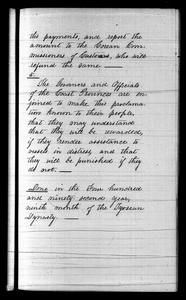 the payments, and report the
amount to the Corean Com-
missioners of Customs, who will
refund the same. —
5 —
The Governors and Officials
of the Coast Provinces are en-
joined to make this proclama-
tion known to their people,
that they may understand
that they will be rewarded,
if they render assistance to
vessels in distress, and that
they will be punished if they
do not. —
Done in the four hundred
and ninety second year,
ninth month of the Tyosean
Dynasty —